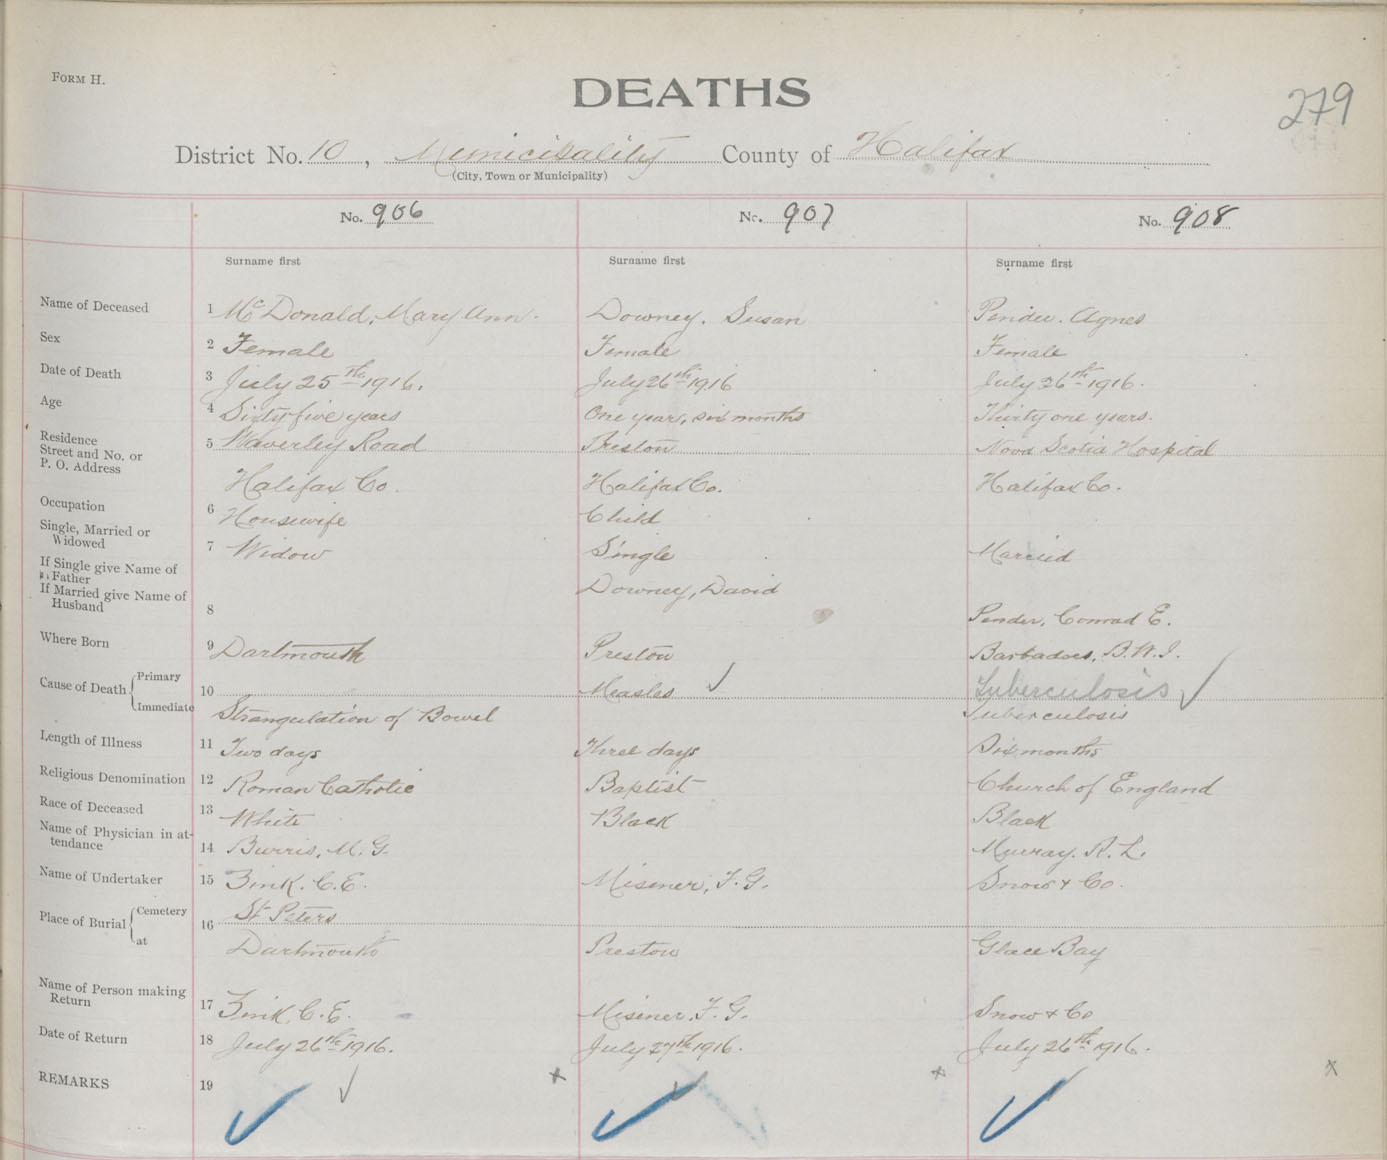 FORM H.
DEATHS
279
District No. 10, Municipality County of Halifax
(City, Town or Municipality)
No. 906 No. 907 No. 908
Surname first Surname first Surname first
Name of Deceased 1 McDonald, Mary Ann. Downey, Susan Pender, Agnes
Sex 2 Female Female Female
Date of Death 3 July 25th 1916. July 26th 1916 July 26th 1916.
Age 4 Sixty five years One year, six months Thirty one years.
Residence
Street and No. or 5 Waverley Road Preston Nova Scotia Hospital
P. O. Address
Halifax Co. Halifax Co. Halifax Co.
Occupation 6 Housewife Child
Single, Married or
Widowed 7 Widow Single Married
If Single give Name of
Father Downey, David
If Married give Name of
Husband 8 Pender, Conrad E.
Where Born 9 Dartmouth Preston Barbadoes, B.W.I.
Cause of Death { Primary 10 Measles ✓ Tuberculosis ✓
Immediate Strangulation of Bowel Tuberculosis
Length of Illness 11 Two days Three days Six months
Religious Denomination 12 Roman Catholic Baptist Church of England
Race of Deceased 13 White Black Black
Name of Physician in at-
tendance 14 Burris, M. G. Murray, R. L.
Name of Undertaker 15 Zink, C. E. Misener, F. G. Snow & Co.
Place of Burial { Cemetery 16 St Peters
at Dartmouth Preston Glace Bay
Name of Person making
Return 17 Zink, C. E. Misener, F. G. Snow & Co
Date of Return 18 July 26th 1916. July 27th 1916. July 26th 1916.
REMARKS 19 ✓ ✓ x ✓ ✓ x ✓ x